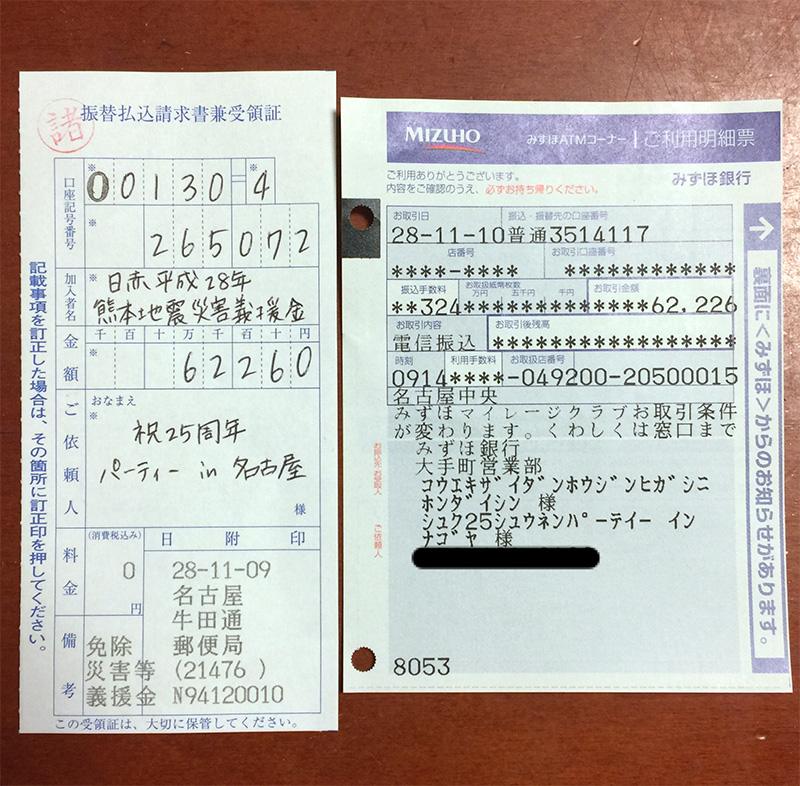 諸
振替払込請求書兼受領証
口座記号番号
※ 00130=4 ※
※ 265072
加入者名
※ 日赤平成28年
熊本地震災害義援金
金額
千百十万千百十円
※ 62260
ご依頼人
おなまえ
※
祝25周年
パーティー in 名古屋
様
料金
(消費税込み)
0
円
日附印
28-11-09
名古屋
牛田通
郵便局
(21476 )
N94120010
備考
免除
災害等
義援金
記載事項を訂正した場合は、その箇所に訂正印を押してください。
この受領証は、大切に保管してください。
MIZUHO みずほATMコーナー ご利用明細票
ご利用ありがとうございます。
内容をご確認のうえ、必ずお持ち帰りください。
みずほ銀行
お取引日 振込・振替先の口座番号
28-11-10普通3514117
店番号 お取引口座番号
****-**** ************
振込手数料 お取扱紙幣枚数 お取引金額
万円 五千円 千円
**324************62,226
お取引内容 お取引後残高
電信振込 ****************
時刻 利用手数料 お取扱店番号
0914****-049200-20500015
名古屋中央
みずほマイレージクラブお取引条件
が変わります。くわしくは窓口まで
お振込先 お受取人
みずほ銀行
大手町営業部
コウエキザイダンホウジンヒガシニ
ホンダイシン 様
ご依頼人
シュク25シュウネンパーテイー イン
ナゴヤ 様
8053
裏面に<みずほ>からのお知らせがあります。